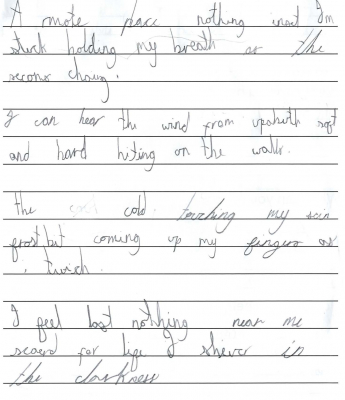 A mote place nothing insat I'm
stuck holding my breath as the
seconds chang.
I can hear the wind from upahuth soft
and hard hiting on the walls.
the cold touching my scin
frostbut coming up my fingers as
I twich.
I feel lost nothing near me
scaerd for life I shiver in
the darkness